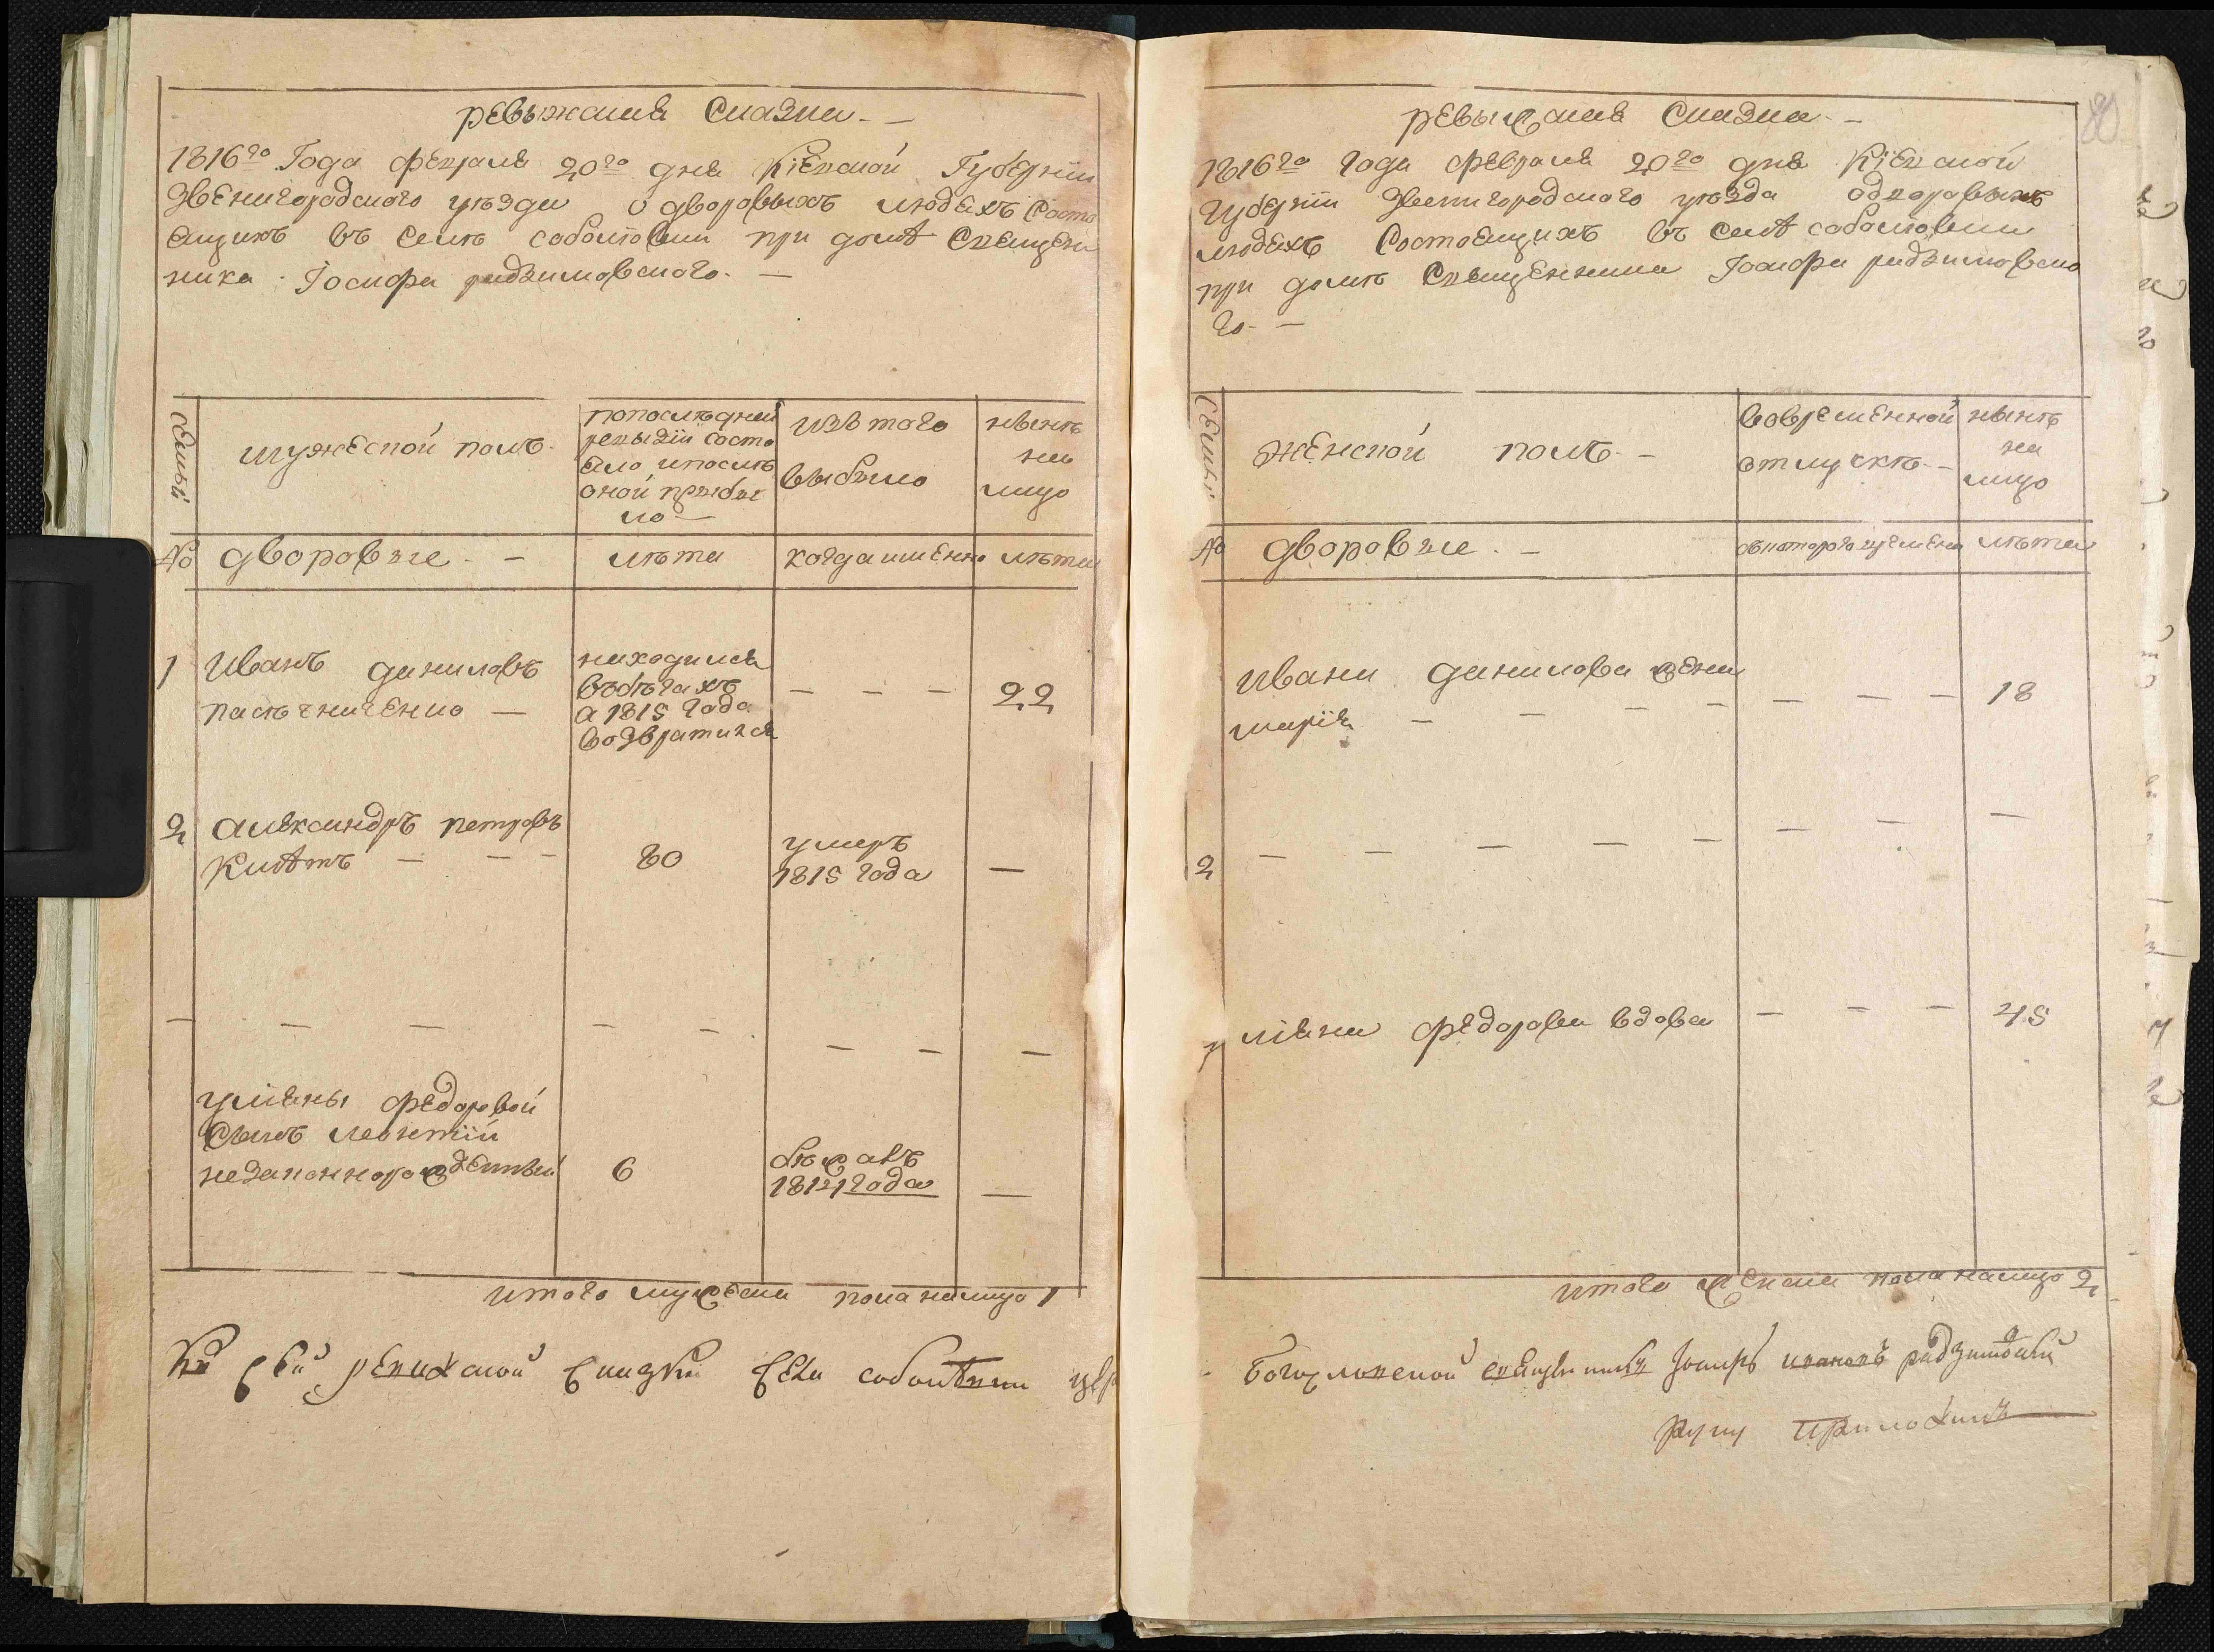 ревыжская Сказка
1816го Года февраля 20го дня Кіевской Губерніи
Звенигородского уезда о дворовыхъ людехъ Состо
ещихъ въ селѣ соболювки при домѣ Священ
ника Іосифа радзимовского
семьи
мужеской полъ
попослѣдней
ревызіи состо
яло ипослѣ
оной прибы
ло
изъ того
выбыло
нынѣ
на
лицо
№ дворовые
лѣта
когда имєнно
лѣта
1 Иванъ даниловъ
пасѣчниченко
находился
въбѣгахъ
а 1815 года
возвратился
22
2 александръ петровъ
80
умеръ
1815 года
уліяны федоровой
сынъ леонтій
незаконнорожденный
6
бежалъ
1814 года
итого мужеска пола налицо 1
Къ сей ревижской сказки села соболювки
80
ревыжская Сказка
1816го года февраля 20го дня Кіевской
Губерніи Звенигородского уезда одворовыхъ
людехъ Состоещихъ въ селѣ соболювки
при домѣ Священника Іосифа радзимовско
го
семьи
женской полъ
вовременной
отлучкѣ
нынѣ
на
лицо
№ дворовые
съкоторого времени
лѣта
Ивана данилова жена
марія
18
2
уліяна федорова вдова
45
итого женска пола налицо 2
Богословской священникъ Іосифъ ивановъ радзимовскій
руку приложилъ